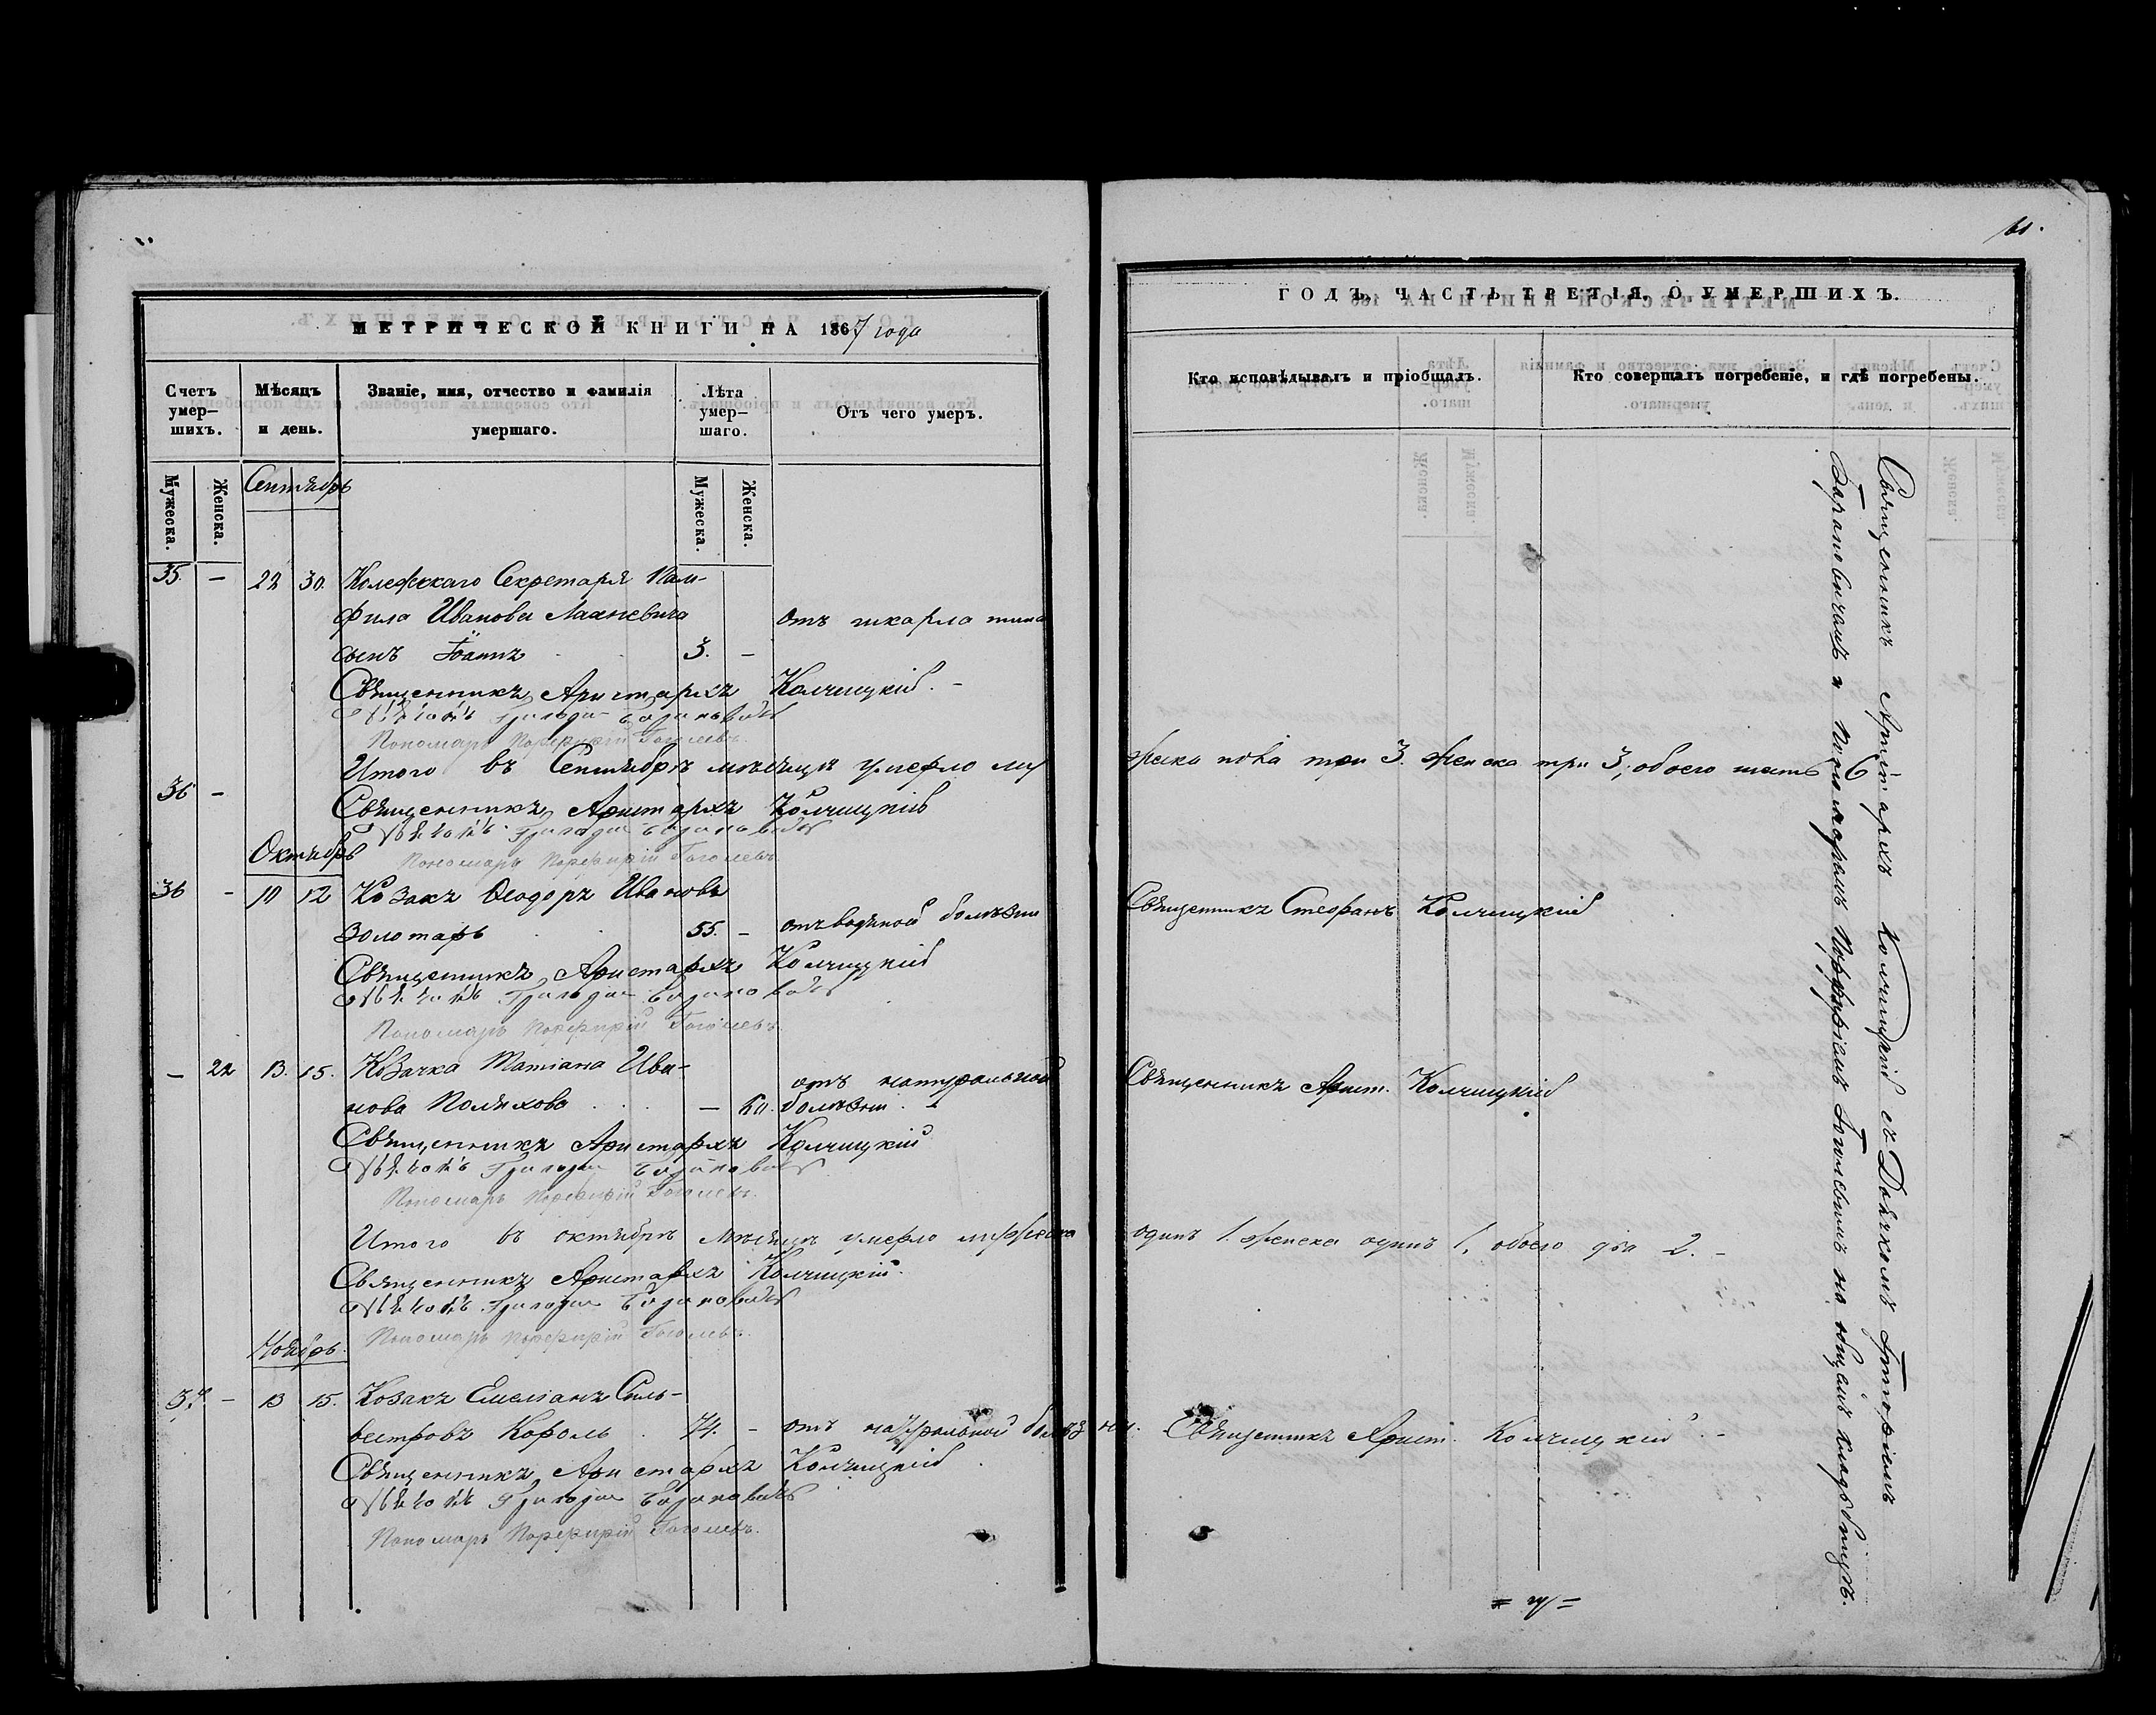 МЕТРИЧЕСКОЙ КНИГИ НА 1867 года
Счетъ умер–шихъ.
Мѣсяцъ и день.
Званіе, имя, отчество и фамилія умершаго.
Лѣта умер–шаго.
Отъ чего умеръ.
Мужеска.
Женска.
Мужеска.
Женска.
Сентябрь
35. – 22 30. Колежскаго Секретаря Пам-
фила Иванова Махневича отъ шкарлатина
сынъ Іоаннъ 3. –
Священникъ Аристархъ Колчицкій. –
Дьячокъ Григорій Барановичъ
Пономарь Порфирій Гоголевъ.
Итого въ Сентябрѣ мѣсяцѣ умерло му
36 –
Священникъ Аристархъ Колчицкій
Дьячокъ Григорій Барановичъ
Октябрь
Пономарь Порфирій Гоголевъ.
36 – 10 12 Козакъ Ѳеодоръ Ивановъ
Золотарь 55. – отъ водяной болѣзни
Священникъ Аристархъ Колчицкій
Дьячокъ Григорій Барановичъ
Пономарь Порфирій Гоголевъ.
– 22 13. 15. Козачка Татіана Ива-
нова Поляхова – 60. отъ натуральной болѣзни. –
Священникъ Аристархъ Колчицкій
Дьячокъ Григорій Барановичъ
Пономарь Порфирій Гоголевъ.
Итого въ октябрѣ мѣсяцѣ умерло мужеска
Священникъ Аристархъ Колчицкій.
Дьячокъ Григорій Барановичъ
Пономарь Порфирій Гоголевъ.
Ноябрь.
37. – 13 15. Козакъ Емеліанъ Силь-
вестровъ Король 74. – отъ натуральной болѣзни.
Священникъ Аристархъ Колчицкій
Дьячокъ Григорій Барановичъ
Пономарь Порфирій Гоголевъ.
61.
ГОДЪ, ЧАСТЬ ТРЕТІЯ, О УМЕРШИХЪ.
Кто исповѣдывалъ и пріобщалъ.
Кто совершалъ погребеніе, и гдѣ погребены.
жеска пола три 3. женска три 3, обоего шесть 6
Священникъ Стефанъ Колчицкій
Священникъ Арист. Колчицкій
одинъ 1. женска одинъ 1, обоего два 2. –
Священникъ Арист. Колчицкій. –
Священникъ Аристархъ Колчицкій съ Дьячкомъ Григоріемъ
Барановичемъ и Пономаремъ Порфиріемъ Гоголевымъ на общемъ кладбищѣ.